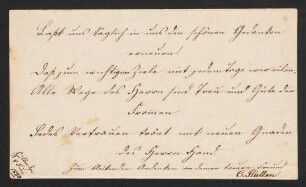 Laßt uns täglich in uns den schönen Gedanken
erneuern!
Daß zum wichtigen Ziele mit jedem Tage wir eilen.
Alle Wege des Herrn sind Treu und Güte den
Frommen
Jedes Vertrauen krönt mit neuen Gnaden
des Herrn Hand
Zum bleibenden Andenken an deinen treuen Freund
O. Küllen